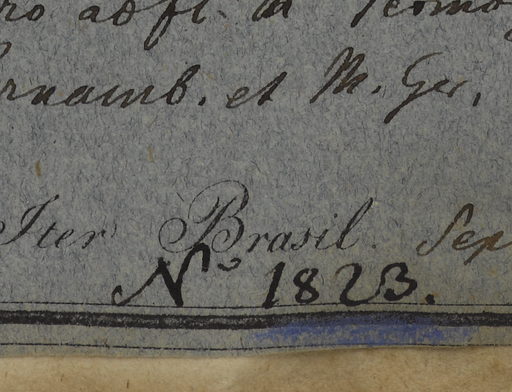 ernamb. et M. Ger,
Iter Brasil. Sep
Nº 1823.